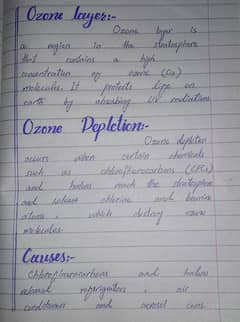 Ozone layer:-
Ozone layer is
a region in the stratosphere
that contains a high
concentration of ozone (O3)
molecules. It protects life on
earth by absorbing UV radiations
Ozone Depletion:-
Ozone depletion
occurs when certain chemicals
such as chlorofluorocarbons (CFCs)
and halons reach the stratosphere
and release chlorine and bromine
atoms, which destroy ozone
molecules.
Causes:-
Chlorofluorocarbons and halons
refrigerators, air
conditioners and aerosol cans